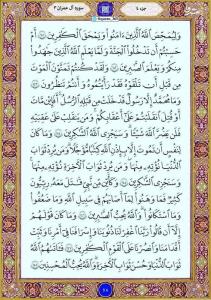 سورة آل عمران ٣
جزء ٤
وَلِيُمَحِّصَ ٱللَّهُ ٱلَّذِينَ ءَامَنُوا۟ وَيَمْحَقَ ٱلْكَٰفِرِينَ ١٤١ أَمْ
حَسِبْتُمْ أَن تَدْخُلُوا۟ ٱلْجَنَّةَ وَلَمَّا يَعْلَمِ ٱللَّهُ ٱلَّذِينَ جَٰهَدُوا۟
مِنكُمْ وَيَعْلَمَ ٱلصَّٰبِرِينَ ١٤٢ وَلَقَدْ كُنتُمْ تَمَنَّوْنَ ٱلْمَوْتَ
مِن قَبْلِ أَن تَلْقَوْهُ فَقَدْ رَأَيْتُمُوهُ وَأَنتُمْ تَنظُرُونَ ١٤٣
وَمَا مُحَمَّدٌ إِلَّا رَسُولٌ قَدْ خَلَتْ مِن قَبْلِهِ ٱلرُّسُلُ أَفَإِي۟ن مَّاتَ
أَوْ قُتِلَ ٱنقَلَبْتُمْ عَلَىٰٓ أَعْقَٰبِكُمْ وَمَن يَنقَلِبْ عَلَىٰ عَقِبَيْهِ
فَلَن يَضُرَّ ٱللَّهَ شَيْـًٔا وَسَيَجْزِى ٱللَّهُ ٱلشَّٰكِرِينَ ١٤٤ وَمَا كَانَ
لِنَفْسٍ أَن تَمُوتَ إِلَّا بِإِذْنِ ٱللَّهِ كِتَٰبًا مُّؤَجَّلًا وَمَن يُرِدْ ثَوَابَ
ٱلدُّنْيَا نُؤْتِهِۦ مِنْهَا وَمَن يُرِدْ ثَوَابَ ٱلْءَاخِرَةِ نُؤْتِهِۦ مِنْهَا
وَسَنَجْزِى ٱلشَّٰكِرِينَ ١٤٥ وَكَأَيِّن مِّن نَّبِىٍّ قَٰتَلَ مَعَهُۥ رِبِّيُّونَ
كَثِيرٌ فَمَا وَهَنُوا۟ لِمَآ أَصَابَهُمْ فِى سَبِيلِ ٱللَّهِ وَمَا ضَعُفُوا۟
وَمَا ٱسْتَكَانُوا۟ وَٱللَّهُ يُحِبُّ ٱلصَّٰبِرِينَ ١٤٦ وَمَا كَانَ قَوْلَهُمْ
إِلَّآ أَن قَالُوا۟ رَبَّنَا ٱغْفِرْ لَنَا ذُنُوبَنَا وَإِسْرَافَنَا فِىٓ أَمْرِنَا
وَثَبِّتْ أَقْدَامَنَا وَٱنصُرْنَا عَلَى ٱلْقَوْمِ ٱلْكَٰفِرِينَ ١٤٧ فَـَٔاتَىٰهُمُ ٱللَّهُ
ثَوَابَ ٱلدُّنْيَا وَحُسْنَ ثَوَابِ ٱلْءَاخِرَةِ وَٱللَّهُ يُحِبُّ ٱلْمُحْسِنِينَ ١٤٨
٦٨